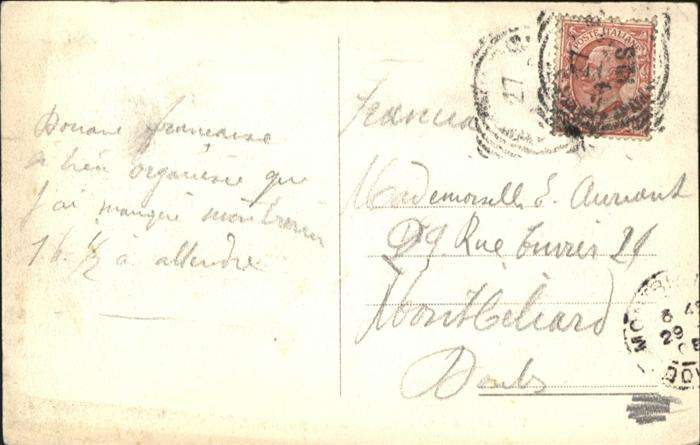 Douane française
si bien organisée que
j'ai manqué mon train
1h ½ à attendre
Francia
Mademoiselle E.
Rue Cuvier 21
Montbéliard
Doubs
POSTE ITALIANE
27
29